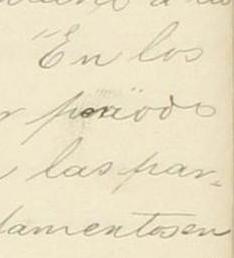 "En los
período
las par-
damentos en